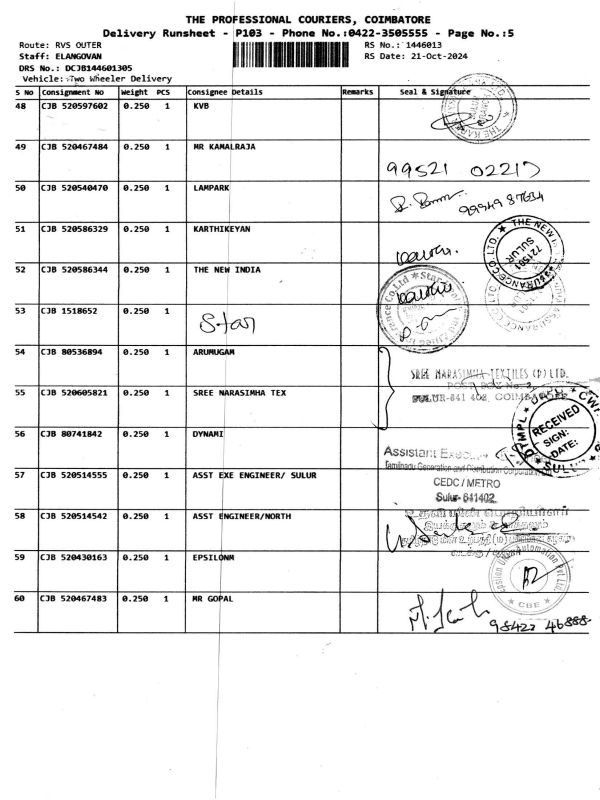 THE PROFESSIONAL COURIERS, COIMBATORE
Delivery Runsheet - P103 - Phone No.:0422-3505555 - Page No.:5
Route: RVS OUTER
RS No.: 1446013
Staff: ELANGOVAN
RS Date: 21-Oct-2024
DRS No.: DCJB144601305
Vehicle: Two Wheeler Delivery
S No Consignment No Weight PCS Consignee Details Remarks Seal & Signature
48 CJB 520597602 0.250 1 KVB
49 CJB 520467484 0.250 1 MR KAMALRAJA
99521 02217
50 CJB 520540470 0.250 1 LAMPARK
99949 87634
51 CJB 520586329 0.250 1 KARTHIKEYAN
THE NEW
721501
SULUR
52 CJB 520586344 0.250 1 THE NEW INDIA
53 CJB 1518652 1
Star
54 CJB 80536894 0.250 1 ARUMUGAM
SREE NARASIMHA TEXTILES (P) LTD.
POST BOX No. 2,
SULUR-641 402, COIMBATORE
55 CJB 520605821 0.250 1 SREE NARASIMHA TEX
RECEIVED
SIGN:
DATE:
SULUR
56 CJB 80741842 0.250 1 DYNAMI
Assistant
Tamilnadu Generation and Distribution Corporation Ltd
57 CJB 520514555 0.250 1 ASST EXE ENGINEER/ SULUR
CEDC / METRO
Sulur- 641402
58 CJB 520514542 0.250 1 ASST ENGINEER/NORTH
59 CJB 520430163 0.250 1 EPSILONM
Automation Pvt Ltd
CBE
60 CJB 520467483 0.250 1 MR GOPAL
98422 46888